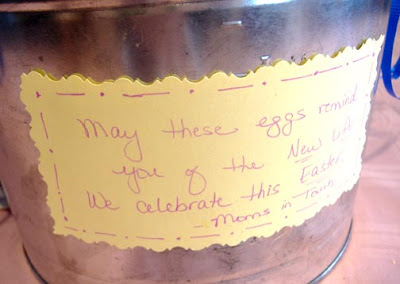 May these eggs remind
you of the New Life
We celebrate this Easter
- Moms in Touch